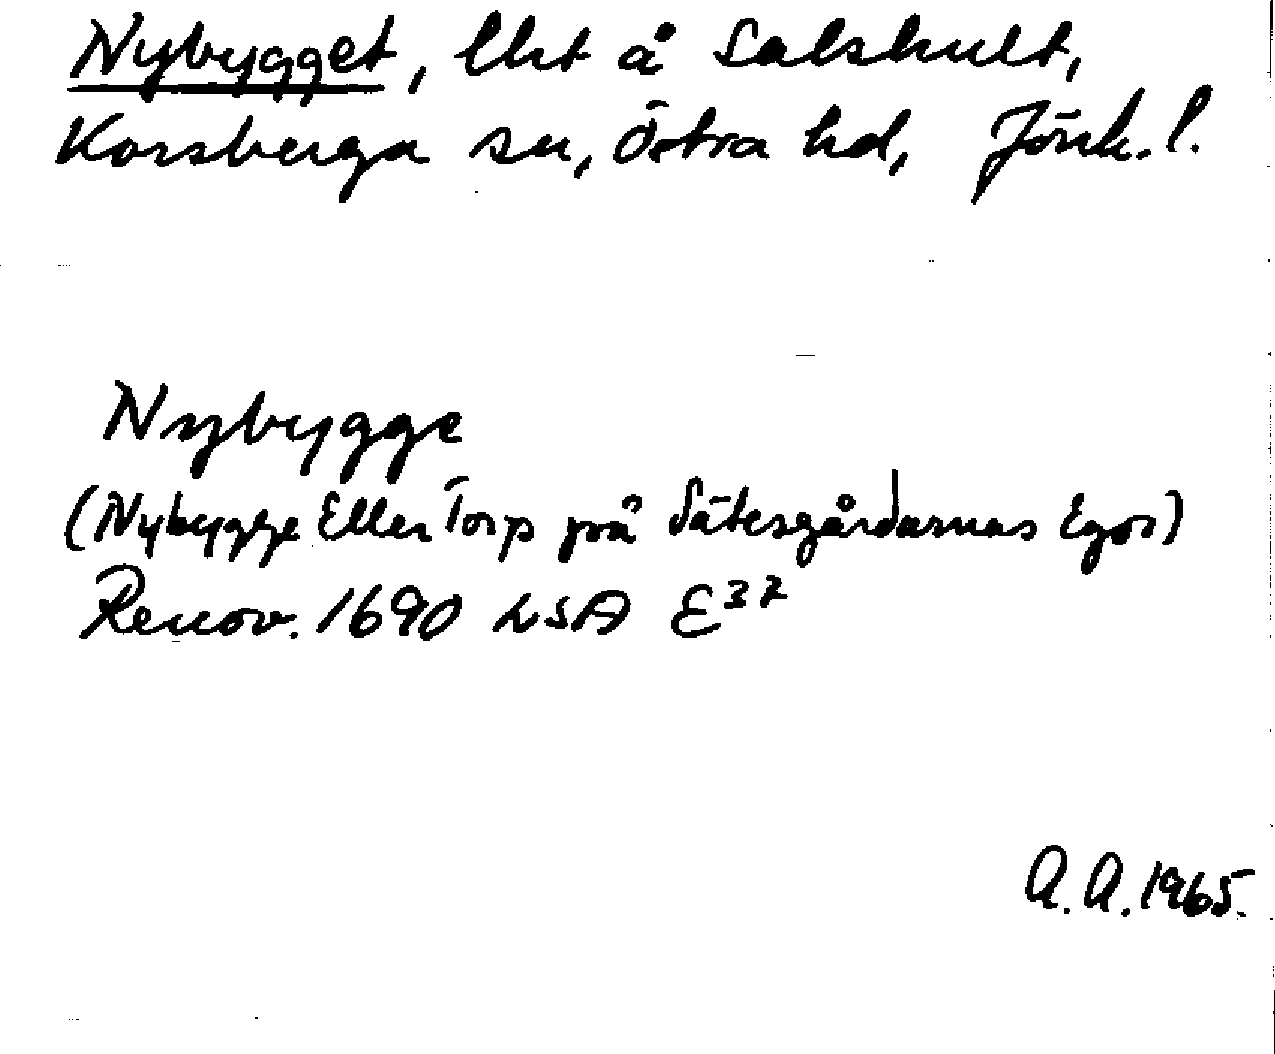 Nybygget, lht å Salshult,
Korsberga sn, Östra hd, Jönk. l.
Nybygge
(Nybygge Eller Torp på Sätesgårdarnas Egor)
Renov. 1690 LSA E³⁷
A. A. 1965.